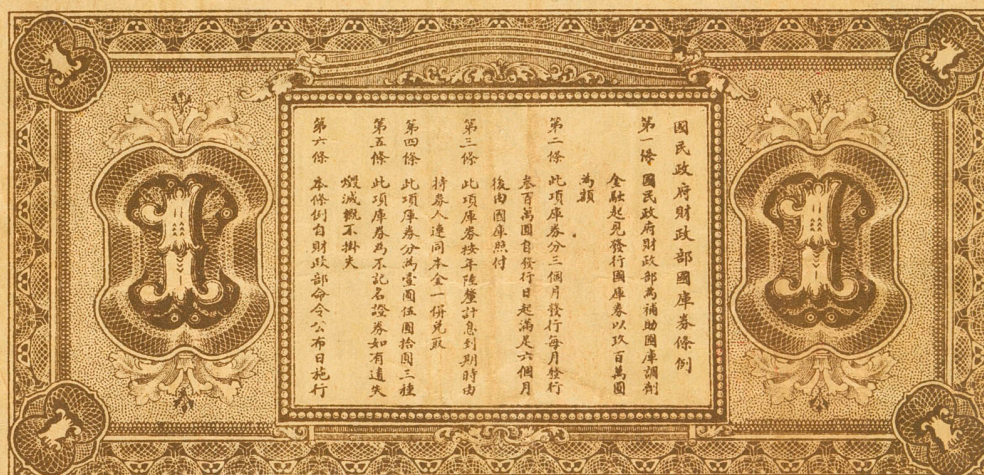 國民政府財政部國庫券條例
第一條 國民政府財政部為補助國庫調劑
金融起見發行國庫券以玖百萬圓
為額
第二條 此項庫券分三個月發行每月發行
叁百萬圓自發行日起滿足六個月
後由國庫照付
第三條 此項庫券按年陸釐計息到期時由
持券人連同本金一倂兌取
第四條 此項庫券分為壹圓伍圓拾圓三種
第五條 此項庫券為不記名證券如有遺失
燬滅概不掛失
第六條 本條例自財政部命令公布日施行
1
1